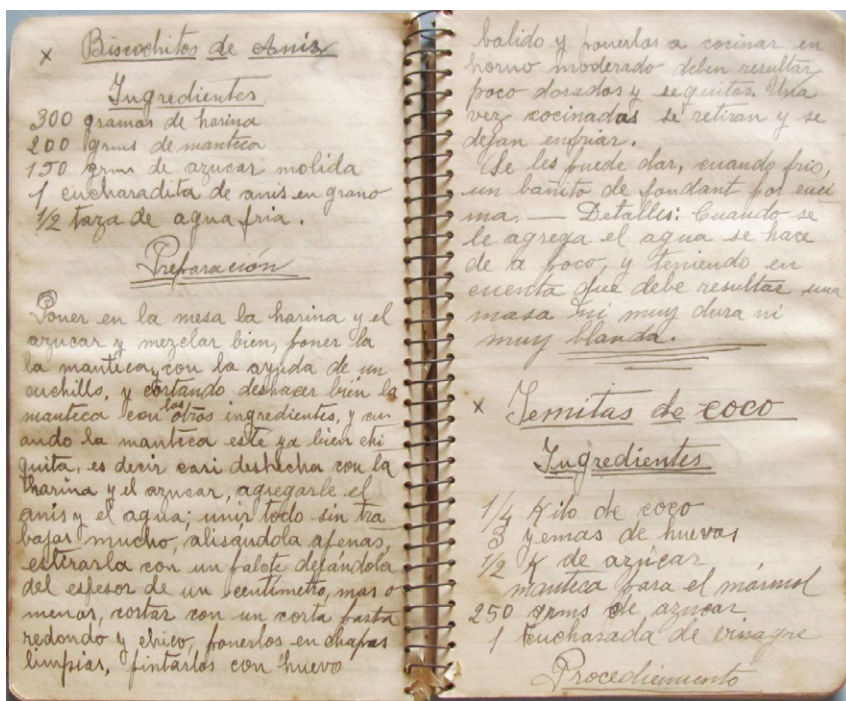 x Biscochitos de Anís
Ingredientes
300 gramos de harina
200 grms de manteca
150 grms de azucar molida
1 cucharadita de anis en grano
1/2 taza de agua fria.
Preparación
Poner en la mesa la harina y el
azucar y mezclar bien, poner la
la manteca, con la ayuda de un
cuchillo, y cortando deshacer bien la
manteca con los otros ingredientes, y cu
ando la manteca este ya bien chi
quita, es decir casi deshecha con la
harina y el azucar, agregarle el
anís y el agua; unir todo sin tra
bajar mucho, alisandola apenas,
estirarla con un palote dejándola
del espesor de un centímetro, mas o
menos, cortar con un corta pasta
redondo y chico, ponerlos en chapas
limpias, pintarlos con huevo
batido y ponerlos a cocinar en
horno moderado deben resultar
poco dorados y sequitos. Una
vez cocinadas se retiran y se
dejan enfriar.
Se les puede dar, cuando frio,
un bañito de fondant por enci
ma. — Detalles: Cuando se
le agrega el agua se hace
de a poco, y teniendo en
cuenta que debe resultar una
masa ni muy dura ni
muy blanda.
x Semitas de coco
Ingredientes
1/4 Kilo de coco
3 yemas de huevos
1/2 K de azúcar
manteca para el mármol
250 grms de azucar
1 cucharada de vinagre
Procedimiento